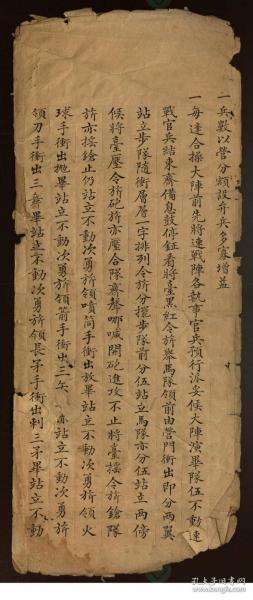 一兵數以管分額設弁兵多寡增益
一每逢合操大陣前先將連戰陣各執事官兵預行派妥候大陣演畢隊伍不動連
戰官兵結束齊備息鼓停鉦看將臺黑紅令旂舉馬隊領前由營門衝出即分兩翼
站立步隊隨衝層層一字排列令旂分擺步隊前分伍站立馬隊亦分伍站立兩傍
候將臺壓令旂砲旂亦壓合隊齊聲哪喊開砲進攻不止將臺搖令旂鎗隊
旂亦搖鎗止仍站立不動次勇旂領噴筒手衝出放畢站立不動次勇旂領火
球手衝出拋畢站立不動次勇旂領箭手衝出三矢 亦站立不動次勇旂
領刀手衝出三 畢站立不動次勇旂領長矛手衝出刺三矛畢站立不動
孔夫子旧书网